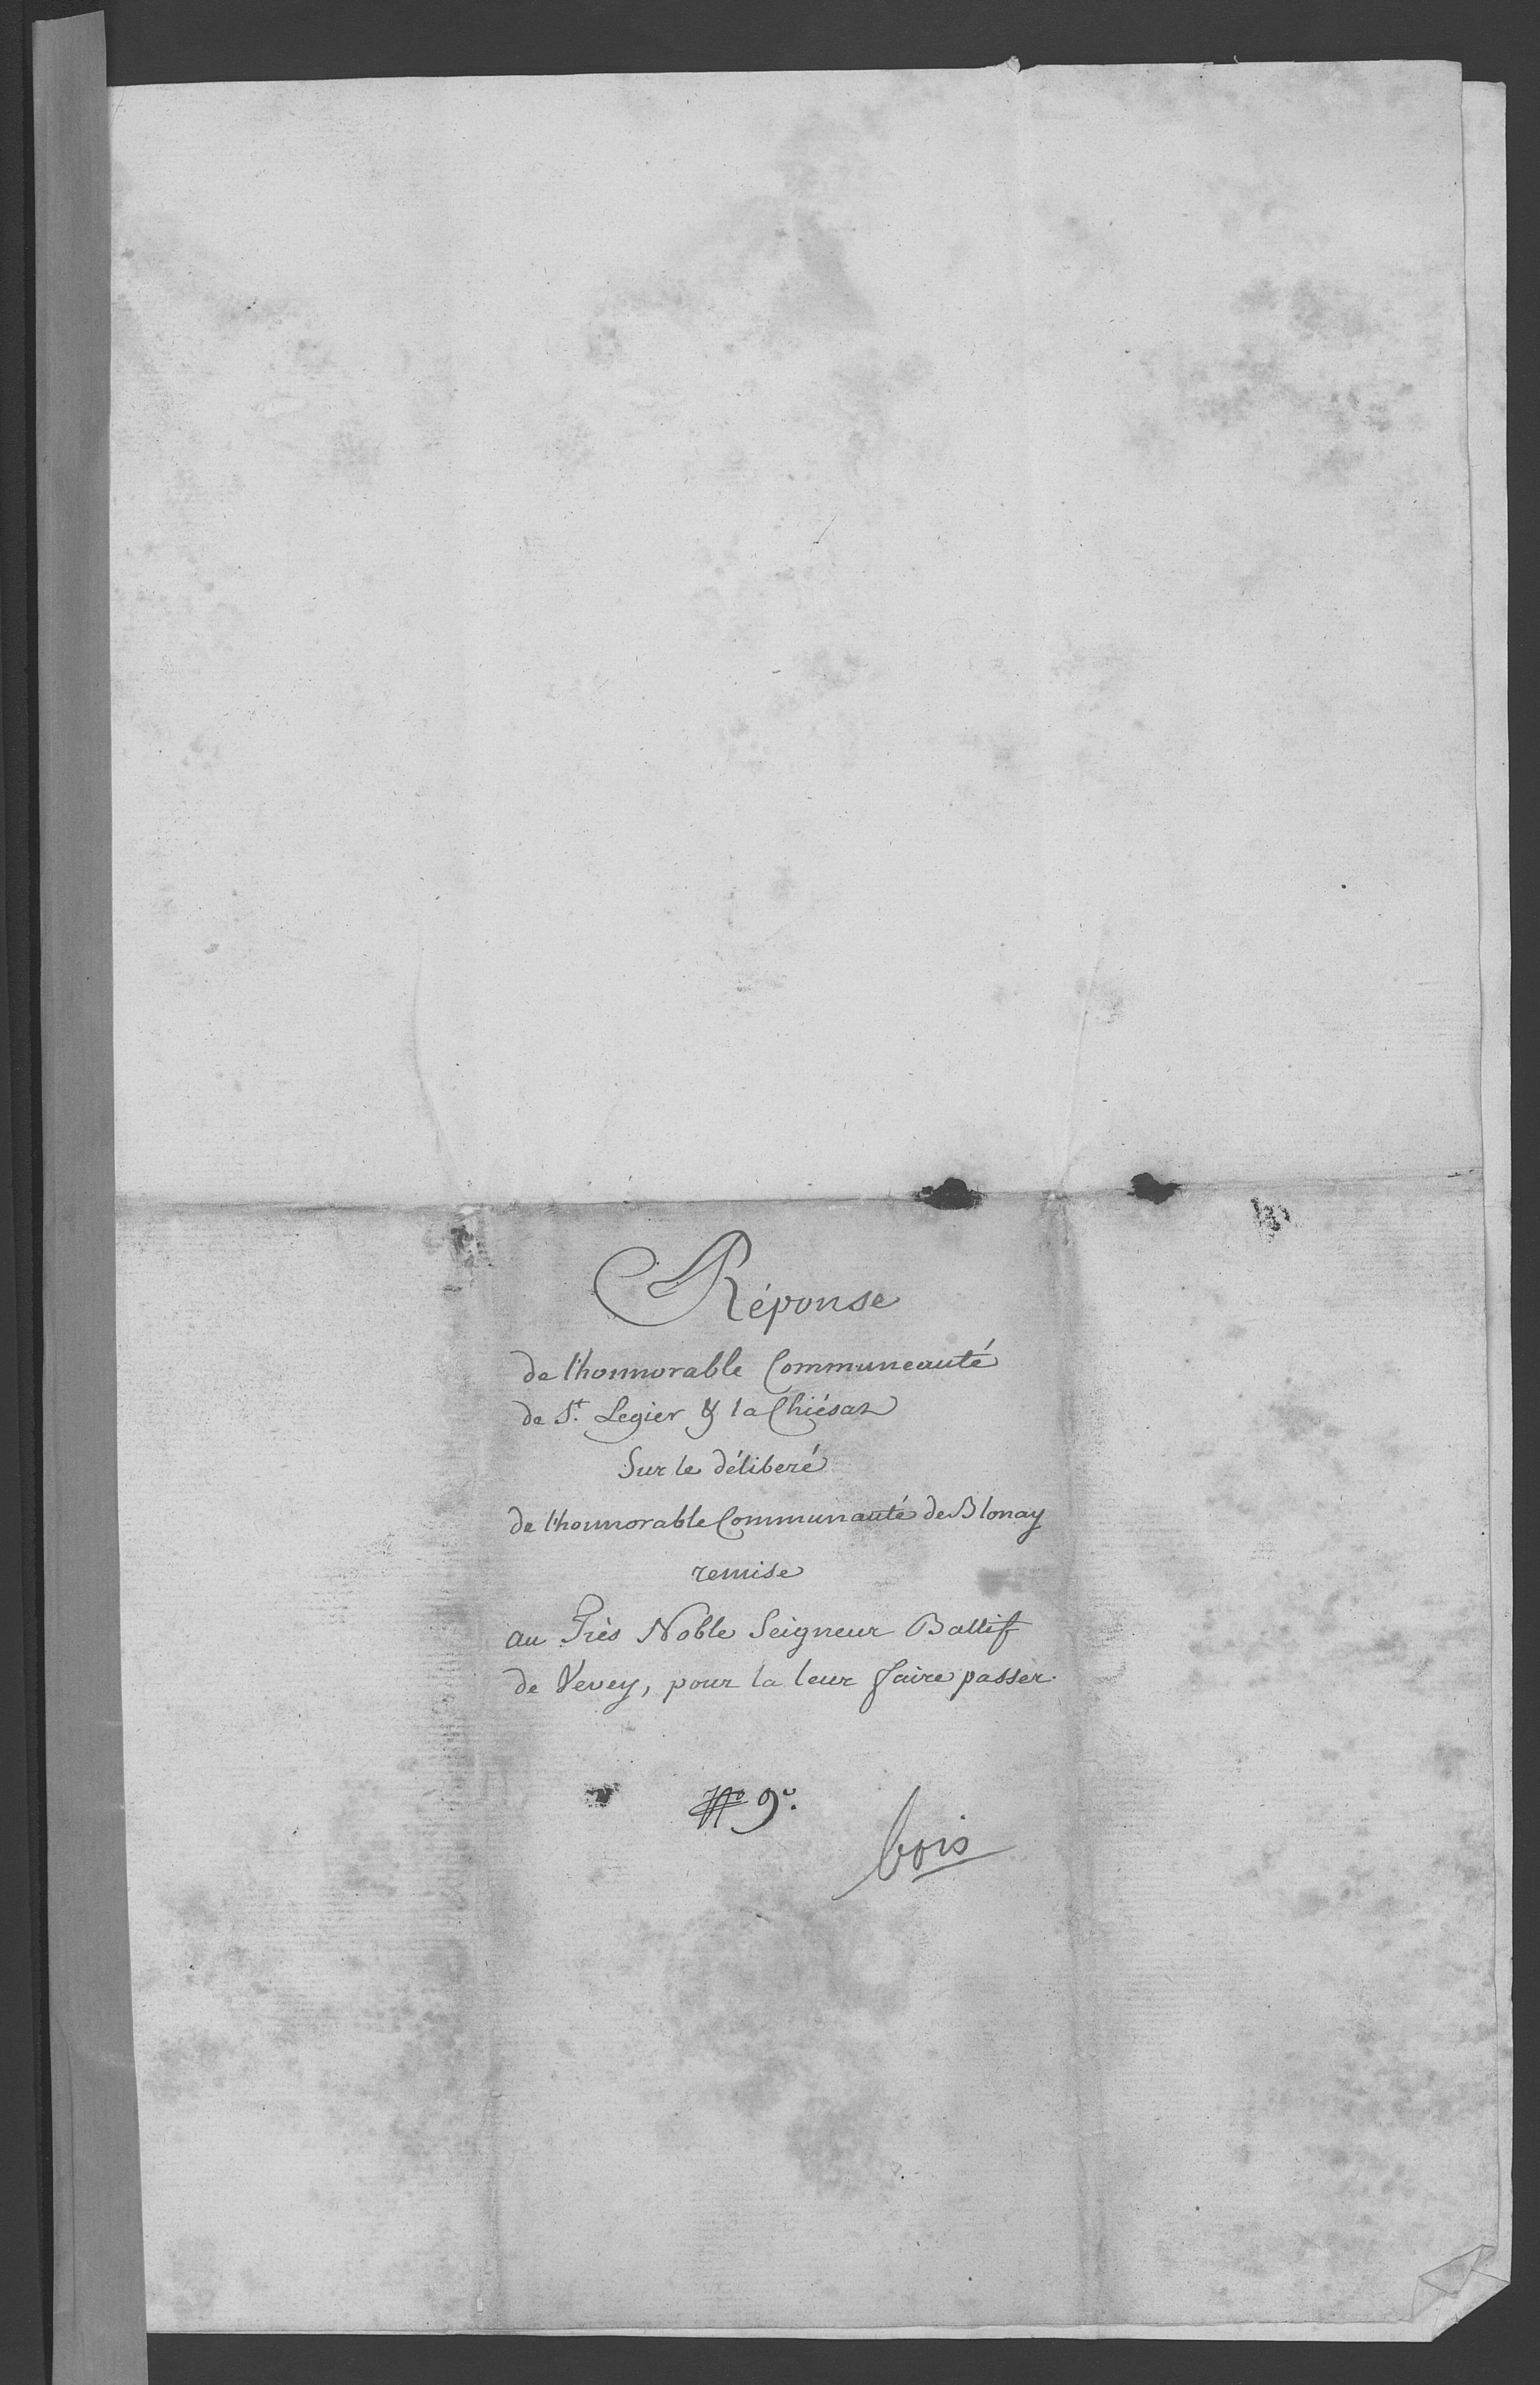 Réponse
de l'honnorable Communeauté
de St. Legier & la Chiésaz
Sur le déliberé
de l'honnorable Communauté de Blonay
remise
au Très Noble Seigneur Ballif
de Vevey, pour la leur faire passer.
No 9o.
bois